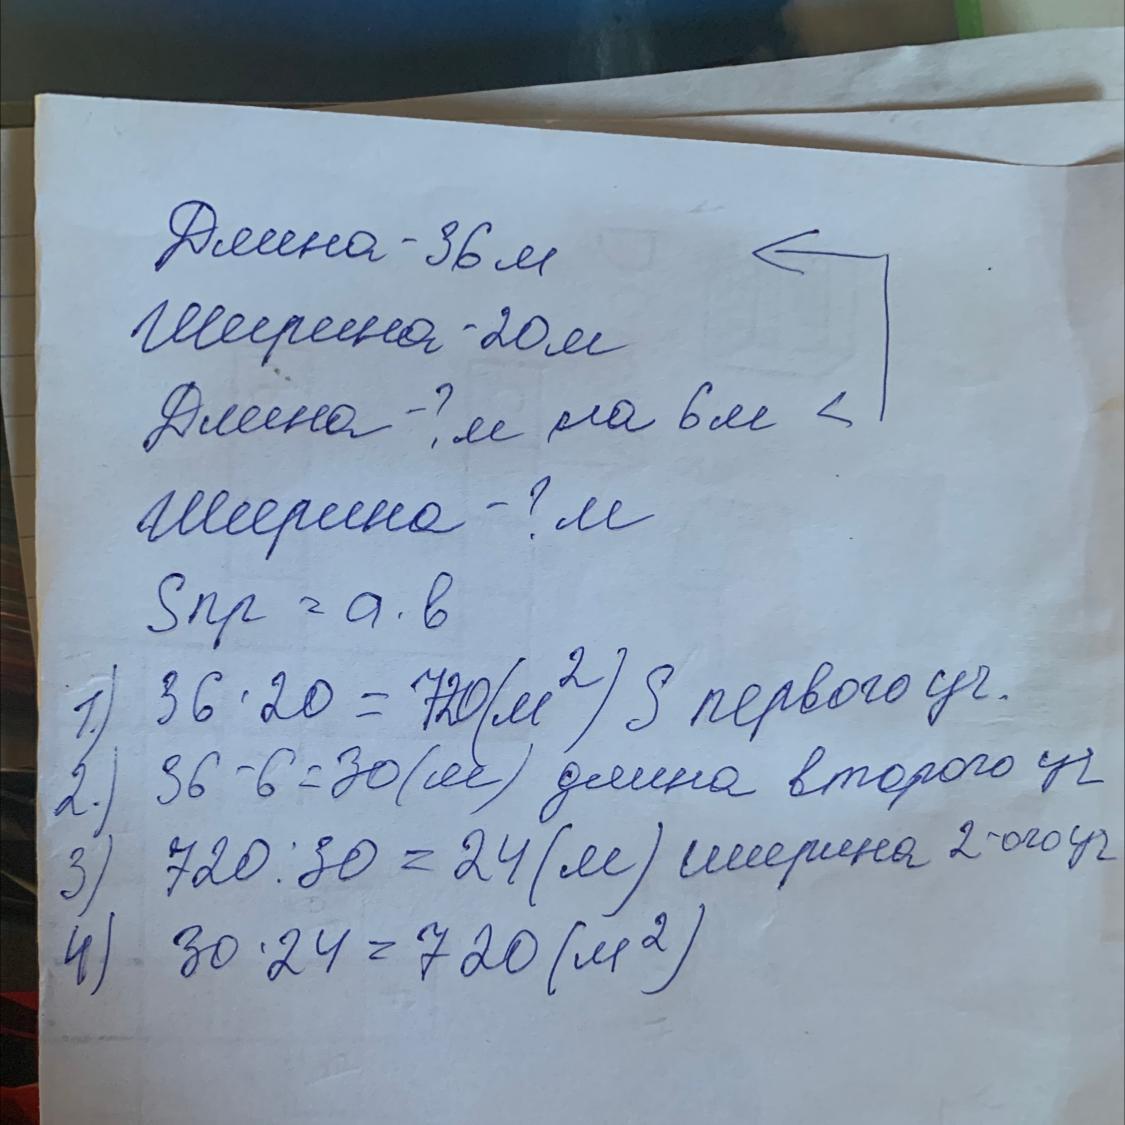 Длина - 36 м
Ширина - 20 м
Длина - ? м на 6 м <
Ширина - ? м
Sпр = а · в
1.) 36 · 20 = 720 (м²) S первого уч.
2.) 36 - 6 = 30 (м) длина второго уч
3) 720 : 30 = 24 (м) ширина 2-ого уч
4) 30 · 24 = 720 (м²)